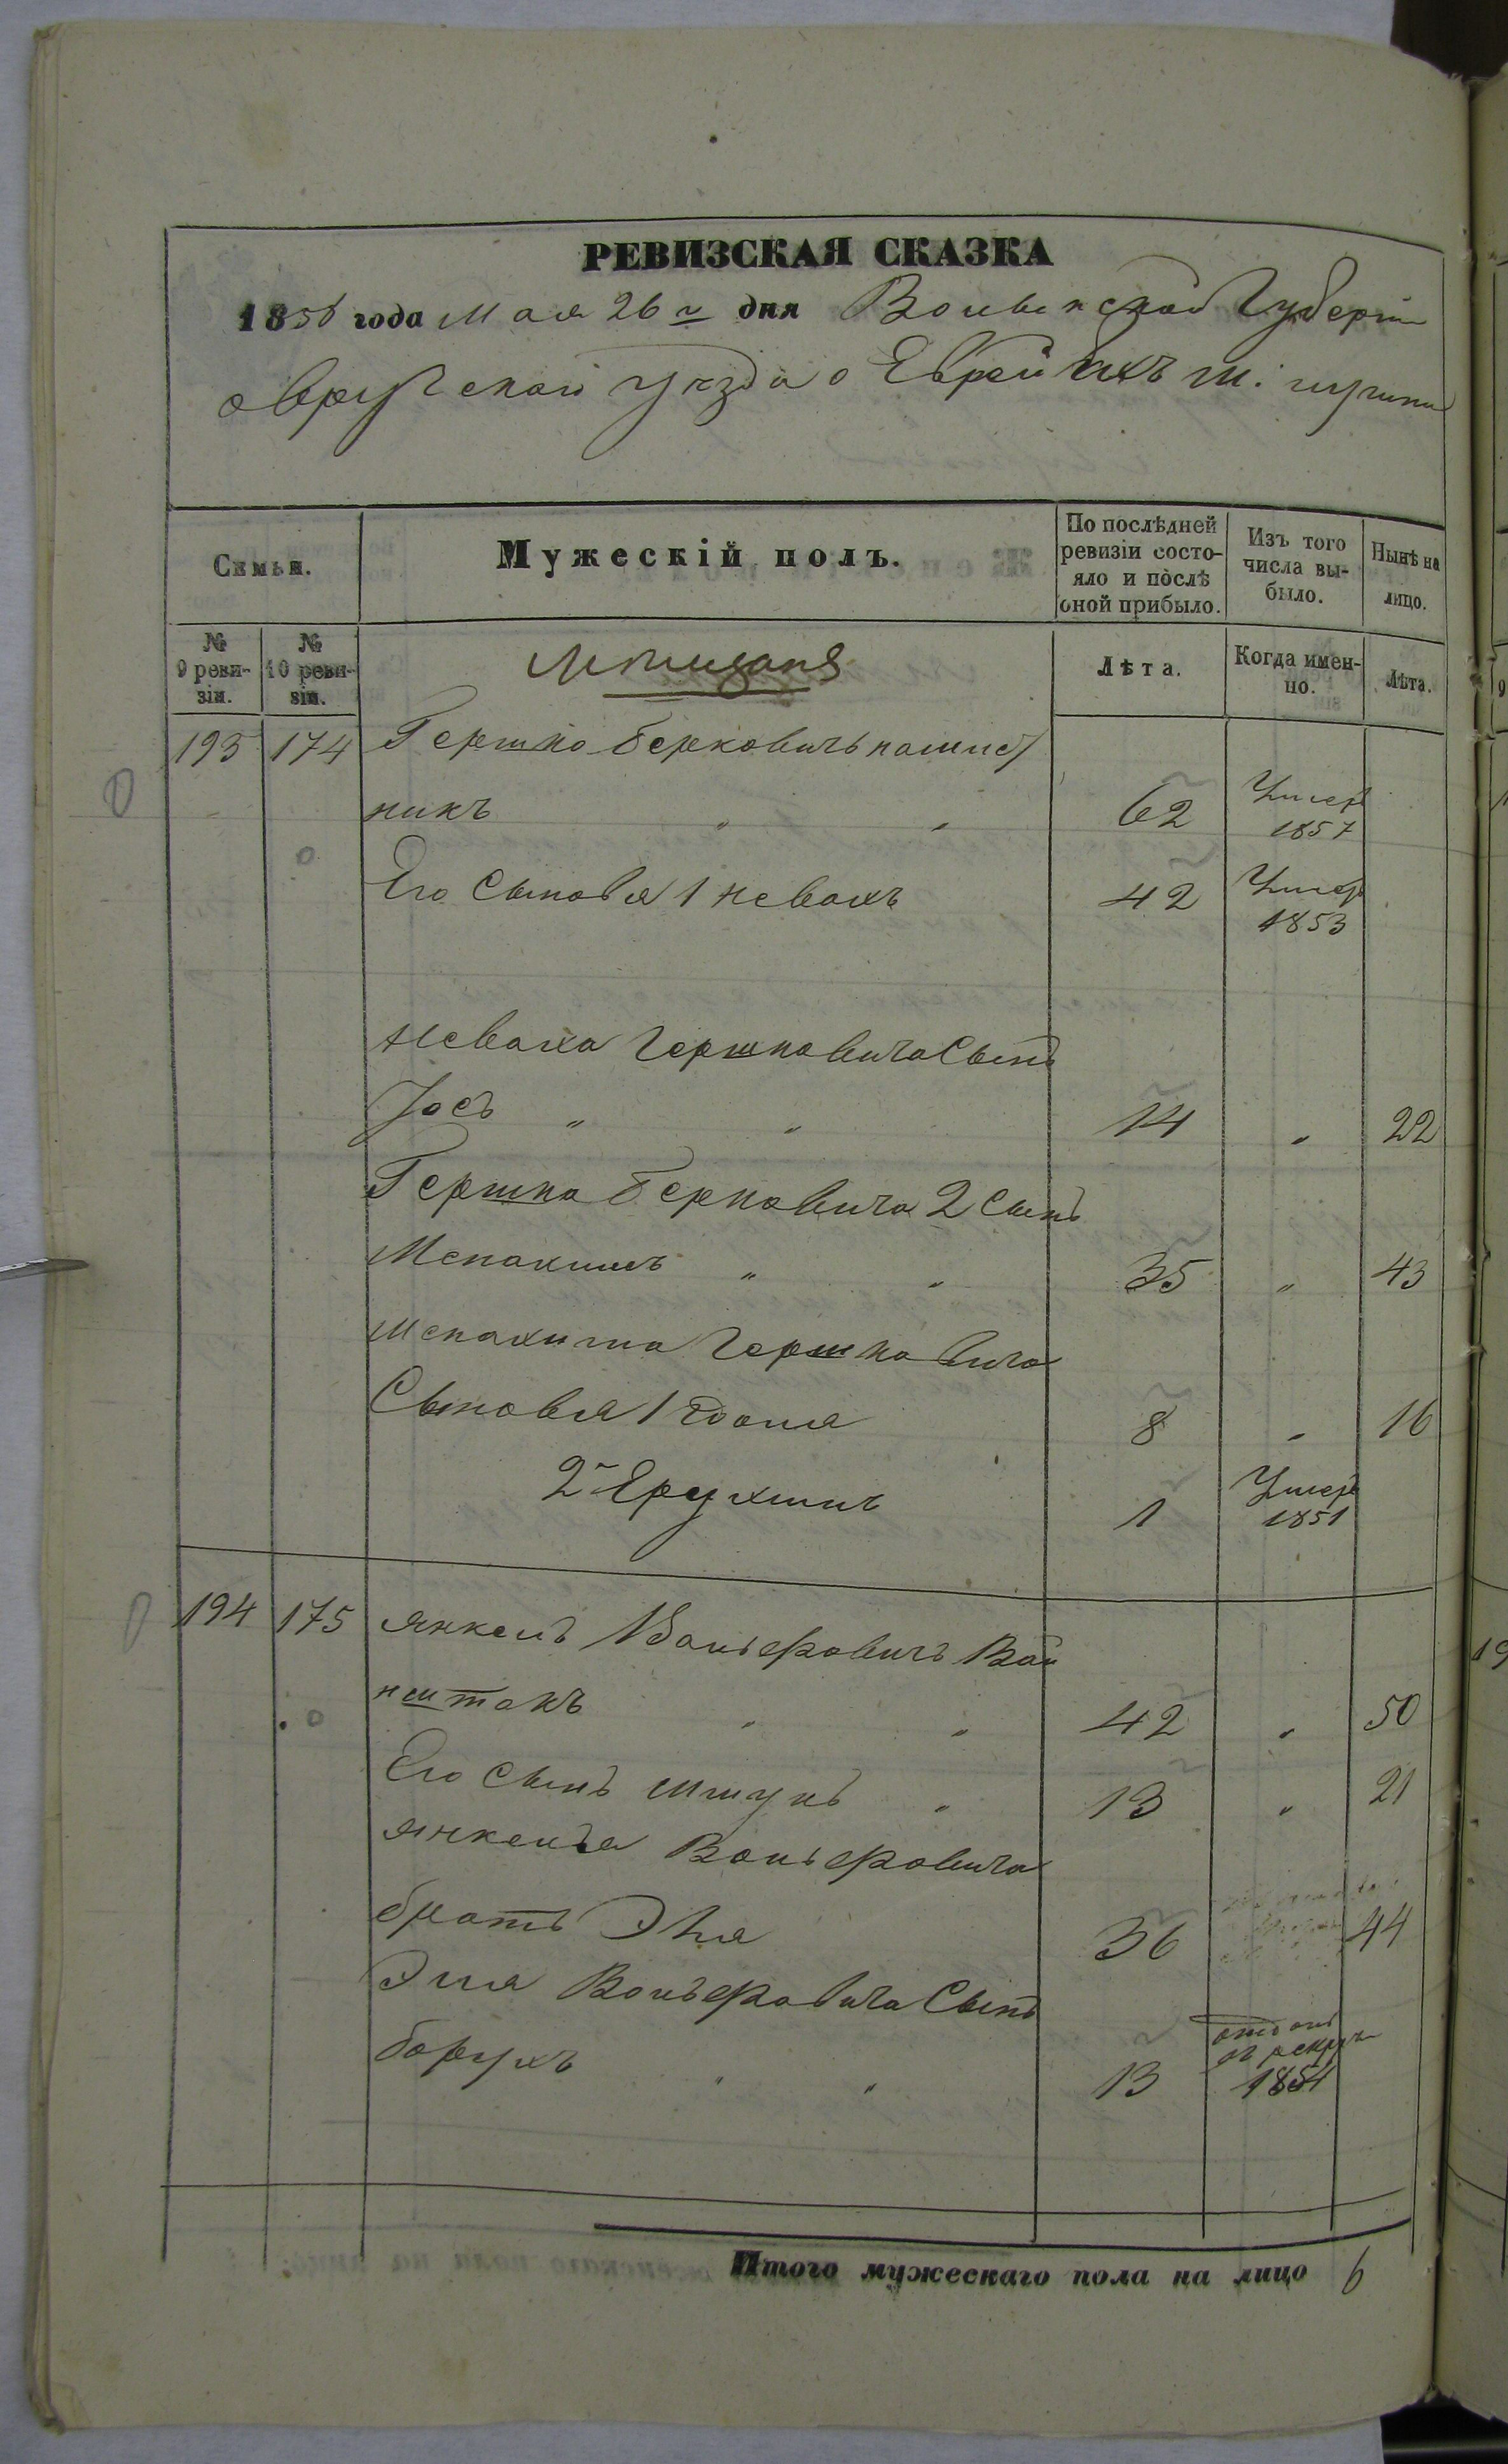 РЕВИЗСКАЯ СКАЗКА
1858 года Мая 26 г дня Волынской Губерніи
овручскаго уезда о Евреяхъ м:
Семьи.
Мужескій полъ.
По послѣдней ревизіи состо-
яло и послѣ оной прибыло.
Изъ того числа вы-
было.
Нынѣ на лицо.
№ 9 реви-
зіи.
№ 10 реви-
зіи.
Мещане
Лѣта.
Когда имен-
но.
Лѣта.
193 174 Гершко Берковичъ
никъ " " 62 Умеръ 1857
Его Сыновья 1 Невахъ 42 Умеръ 1853
Неваха Гершковича Сынъ
Іосъ " " 14 " 22
Гершка Берковича 2 Сынъ
Менахимъ " " 35 " 43
Менахима Гершковича
Сыновья 1 8 " 16
2й Ерухимъ 1 Умеръ 1851
194 175 Янкель Вольфовичъ Вай
нштокъ " " 42 " 50
Его Сынъ Шмуль " 13 " 21
Янкеля Вольфовича
братъ Эля 36 44
Эля Вольфовича Сынъ
Борухъ " " 13 отданъ въ рекруты 1854
Итого мужескаго пола на лицо 6